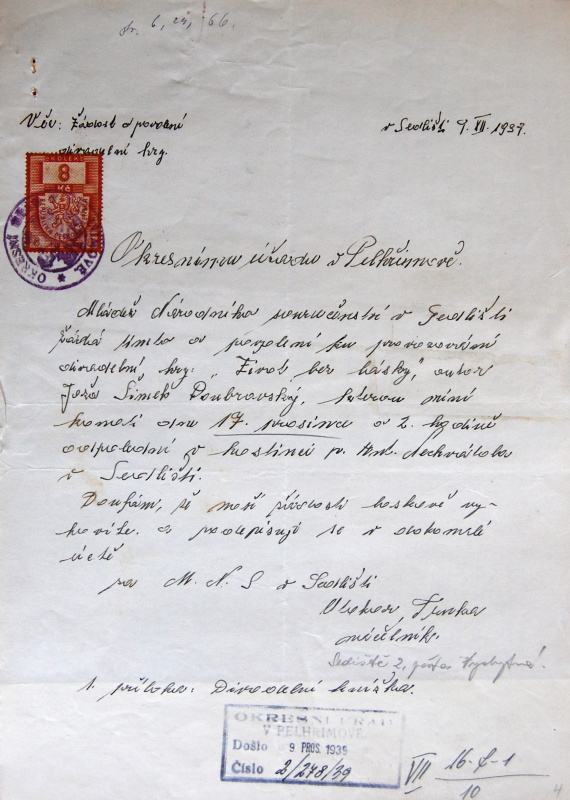 6, 24, 66.
Věc: Žádost o povolení
divadelní hry.
v Sedlišti 9. XII. 1939.
KOLEK
8
Kč
OKRESNÍ
Okresnímu úřadu v Pelhřimově.
Mládež Národního souručenství v Sedlišti
žádá tímto o povolení ku provozování
divadelní hry: "Život bez lásky", autor
Joža Šimek Doubravský, kterou míní
konati dne 17. prosince o 2. hodině
odpolední v hostinci p. Ant. Nechvátala
v Sedlišti.
Doufám, že naší žádosti laskavě vy-
hovíte. a podepisuji se v dokonalé
úctě
za M. N. S v Sedlišti
Otokar
Sediště 2, pošta Vyskytná.
1. příloha: Divadelní knížka.
OKRESNÍ ÚŘAD
V PELHŘIMOVĚ
Došlo 9 PROS. 1939
Číslo 2/248/39
VII
10
4